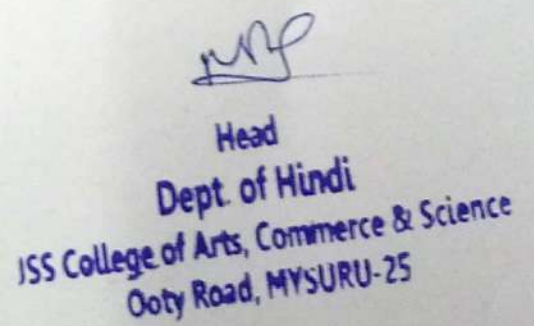 Head
Dept. of Hindi
JSS College of Arts, Commerce & Science
Ooty Road, MYSURU-25